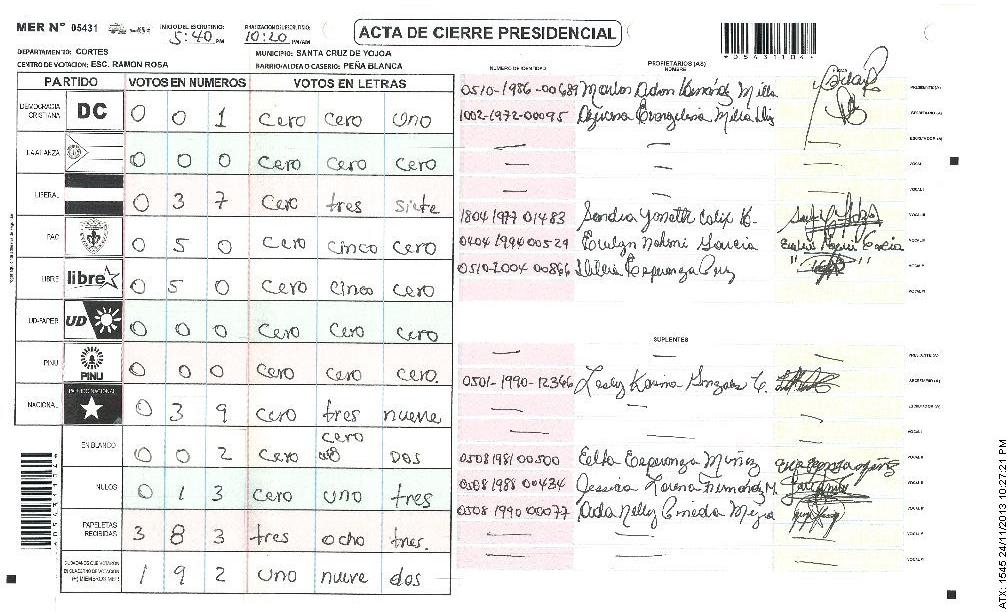 MER N° 05431
INICIO DEL ESCRUTINIO: 5:40 PM
FINALIZACION DEL ESCRUTINIO: 10:20 PM/AM
ACTA DE CIERRE PRESIDENCIAL
DEPARTAMENTO: CORTES
MUNICIPIO: SANTA CRUZ DE YOJOA
CENTRO DE VOTACION: ESC. RAMON ROSA
BARRIO/ALDEA O CASERIO: PEÑA BLANCA
PARTIDO VOTOS EN NUMEROS VOTOS EN LETRAS
DEMOCRACIA CRISTIANA DC 0 0 1 Cero Cero Uno
LA ALIANZA 0 0 0 Cero Cero Cero
LIBERAL 0 3 7 Cero tres siete
PAC 0 5 0 Cero cinco cero
LIBRE libre 0 5 0 Cero Cinco cero
UD-FAPER UD 0 0 0 Cero Cero Cero
PINU PINU 0 0 0 Cero Cero Cero.
NACIONAL PARTIDO NACIONAL 0 3 9 Cero tres nueve
EN BLANCO 0 0 2 Cero cero Dos
NULOS 0 1 3 Cero uno tres
PAPELETAS RECIBIDAS 3 8 3 tres ocho tres.
CIUDADANOS QUE VOTARON EN CUADERNO DE VOTACION (+) MIEMBROS MER 1 9 2 Uno nueve dos
NUMERO DE IDENTIDAD
PROPIETARIOS (AS)
NOMBRE
FIRMA
0510-1986-00689 Marlon PRESIDENTE (A)
1002-1972-00095 Evangelina SECRETARIO (A)
ESCRUTADOR (A)
VOCAL
VOCAL
1804 1977 01483 Sandra Yoneth VOCAL
0404 1994 00529 Evelyn Nohemi Garcia VOCAL
0510-2004 00866 Esperanza Cruz VOCAL
VOCAL
SUPLENTES
PRESIDENTE (A)
0501-1990-12366 Lesly Karina Gonzales SECRETARIO (A)
ESCRUTADOR (A)
VOCAL
0508 1981 00500 Esperanza Muñoz VOCAL
0508 1988 00434 Jessica Lorena VOCAL
0508 1990 00077 Nelly VOCAL
VOCAL
VOCAL
ATX: 1545 24/11/2013 10:27:21 PM